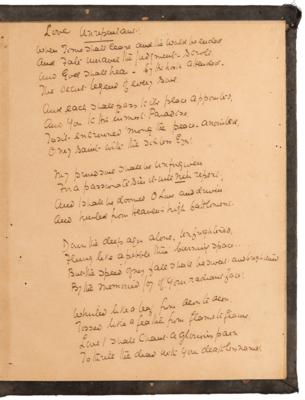 Love Unrepentant.
When Time shall cease and the world be ended
And Fate unravel the Judgment-Scroll,
And God shall hear – by the hosts attended,
The secret legend of every Soul.
And each shall pass to its place appointed,
And You to the inmost Paradise,
To sit enthroned among the peace-anointed,
O my Saint with the
My passion shall be unforgiven
For a passionate Sin it will not repent,
And I shall be doomed O Love and driven
And hurled from Heaven's high battlement.
Down the deep alone, unforgiven,
Flung like a pebble thro' burning space;
But the speed of my fall shall be sweet and
By the memoried joy of Your radiant face!
Whirled like a leaf from aeon to aeon,
Tossed like a feather from flame to flame,
Love I shall chaunt a glorious paean
To thrill the dead with your deathless name.